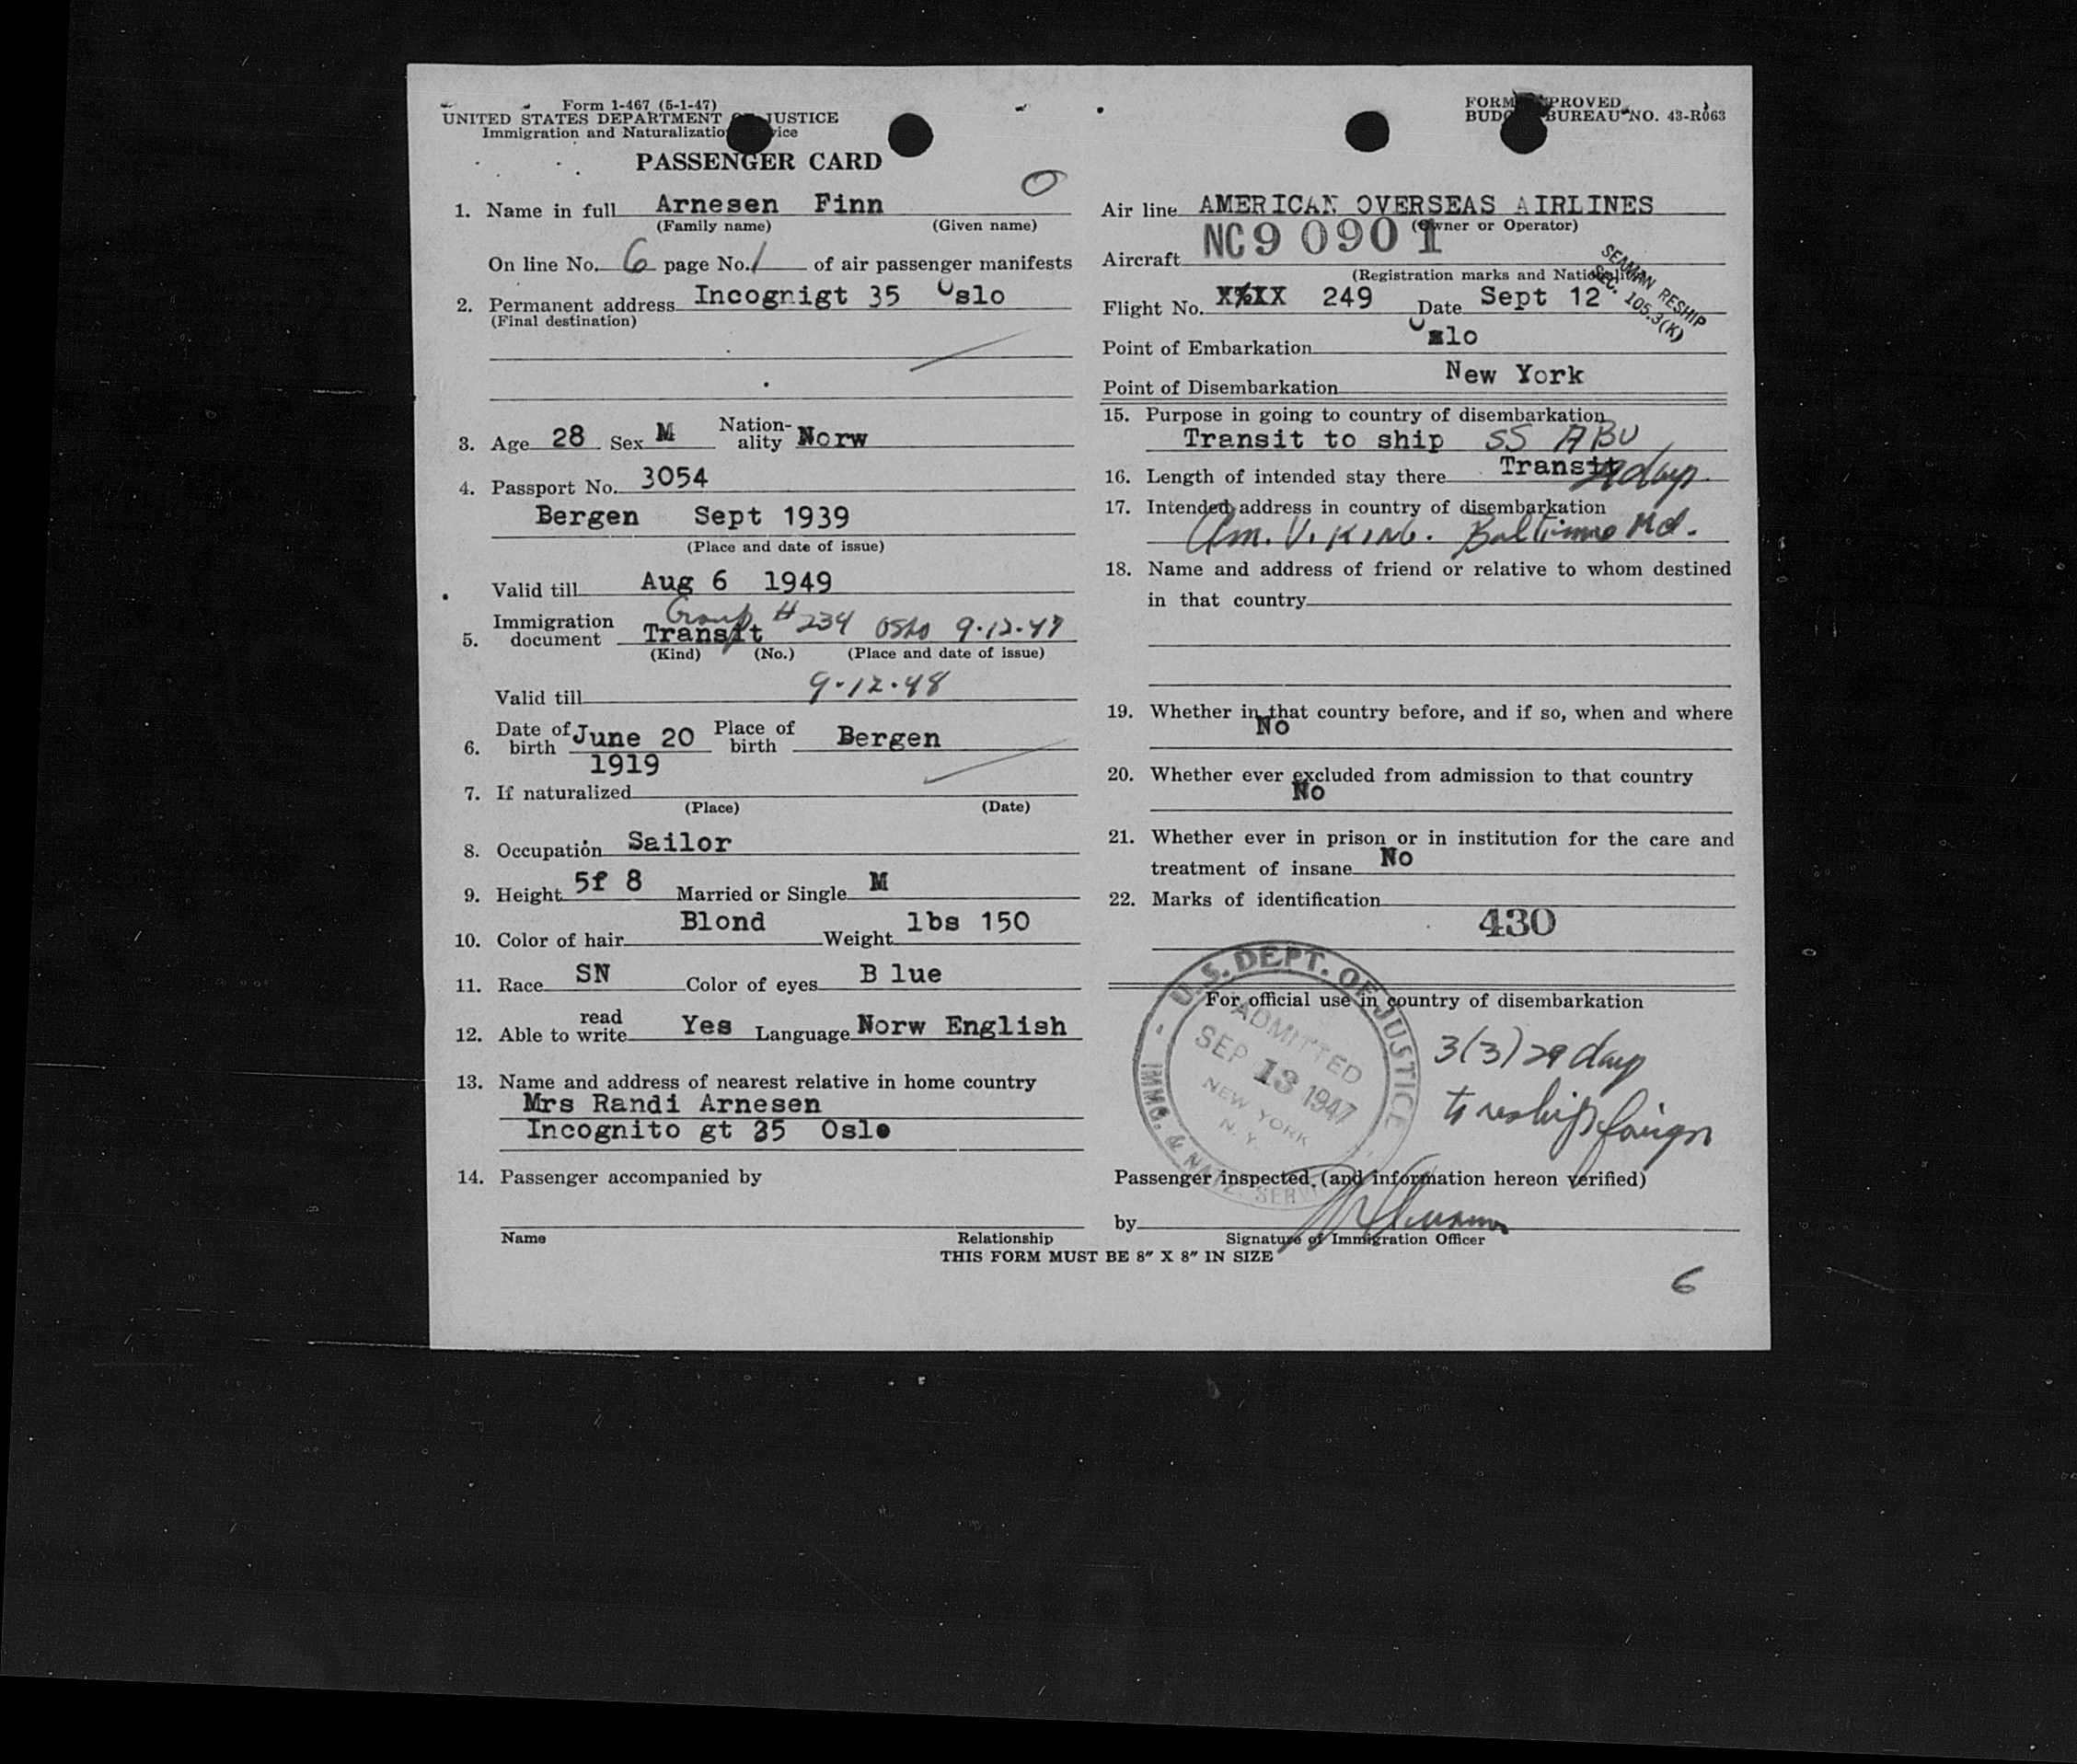 Form 1-467 (5-1-47)
UNITED STATES DEPARTMENT JUSTICE
Immigration and Naturalization
PASSENGER CARD
O
1. Name in full Arnesen Finn
(Family name) (Given name)
On line No. 6 page No. 1 of air passenger manifests
2. Permanent address Incognigt 35 Oslo
(Final destination)
3. Age 28 Sex M Nation-ality Norw
4. Passport No. 3054
Bergen Sept 1939
(Place and date of issue)
Valid till Aug 6 1949
Group # 234 Oslo 9-12-47
5. Immigration document Transit
(Kind) (No.) (Place and date of issue)
Valid till 9-12-48
6. Date of birth June 20 Place of birth Bergen
1919
7. If naturalized
(Place) (Date)
8. Occupation Sailor
9. Height 5f 8 Married or Single M
10. Color of hair Blond Weight lbs 150
11. Race SN Color of eyes B lue
12. Able to read write Yes Language Norw English
13. Name and address of nearest relative in home country
Mrs Randi Arnesen
Incognito gt 35 Oslo
14. Passenger accompanied by
Name Relationship
FORM PROVED
BUREAU NO. 43-R063
Air line AMERICAN OVERSEAS AIRLINES
(Owner or Operator)
Aircraft NC90901
(Registration marks and Nationality)
SEAMAN RESHIP
SEC. 105.3(K)
Flight No. 249 Date Sept 12
Point of Embarkation Oslo
Point of Disembarkation New York
15. Purpose in going to country of disembarkation
Transit to ship SS ABU
16. Length of intended stay there Transit 29 days
17. Intended address in country of disembarkation
Am. Viking. Baltimore Md.
18. Name and address of friend or relative to whom destined
in that country
19. Whether in that country before, and if so, when and where
No
20. Whether ever excluded from admission to that country
No
21. Whether ever in prison or in institution for the care and
treatment of insane No
22. Marks of identification
430
For official use in country of disembarkation
U.S. DEPT. OF JUSTICE
IMMG. & NATZ. SERVICE
ADMITTED
SEP 13 1947
NEW YORK
N. Y.
3(3) 29 days
to reship foreign
Passenger inspected (and information hereon verified)
by
Signature of Immigration Officer
THIS FORM MUST BE 8" X 8" IN SIZE
6